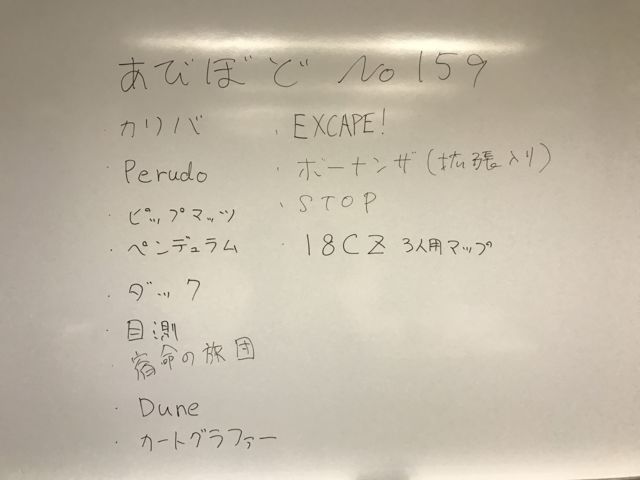 あびぼど No 159
・カリバ
Perudo
・ピップマッツ
・ペンデュラム
・ダック
・目測
宿命の旅団
・Dune
・カートグラファー
・EXCAPE!
・ボーナンザ(拡張入り)
・STOP
・18CZ 3人用マップ